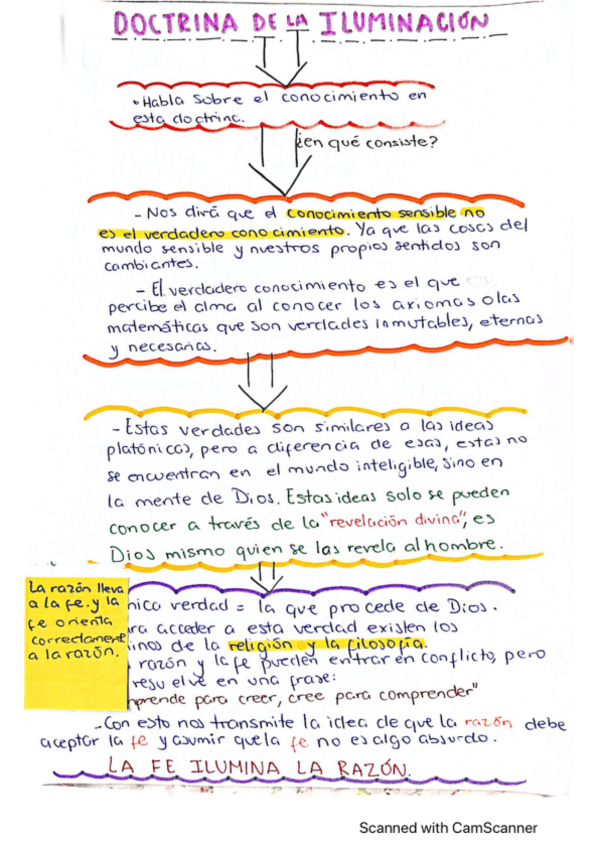 DOCTRINA DE LA ILUMINACIÓN
• Habla sobre el conocimiento en
esta doctrina.
¿en qué consiste?
- Nos dirá que el conocimiento sensible no
es el verdadero conocimiento. Ya que las cosas del
mundo sensible y nuestros propios sentidos son
cambiantes.
- El verdadero conocimiento es el que
percibe el alma al conocer los axiomas o las
matemáticas que son verdades inmutables, eternas
y necesarias.
- Estas verdades son similares a las ideas
platónicas, pero a diferencia de esas, estas no
se encuentran en el mundo inteligible, sino en
la mente de Dios. Estas ideas solo se pueden
conocer a través de la "revelación divina", es
Dios mismo quien se las revela al hombre.
La razón lleva
a la fe. y la
fe orienta
correctament
a la razón.
nica verdad = la que procede de Dios.
ra acceder a esta verdad existen los
inos de la religión y la filosofía.
razón y la fe pueden entrar en conflicto, pero
resuelve en una frase:
prende para creer, cree para comprender"
- Con esto nos transmite la idea de que la razón debe
aceptar la fe y asumir que la fe no es algo absurdo.
LA FE ILUMINA LA RAZÓN.
Scanned with CamScanner